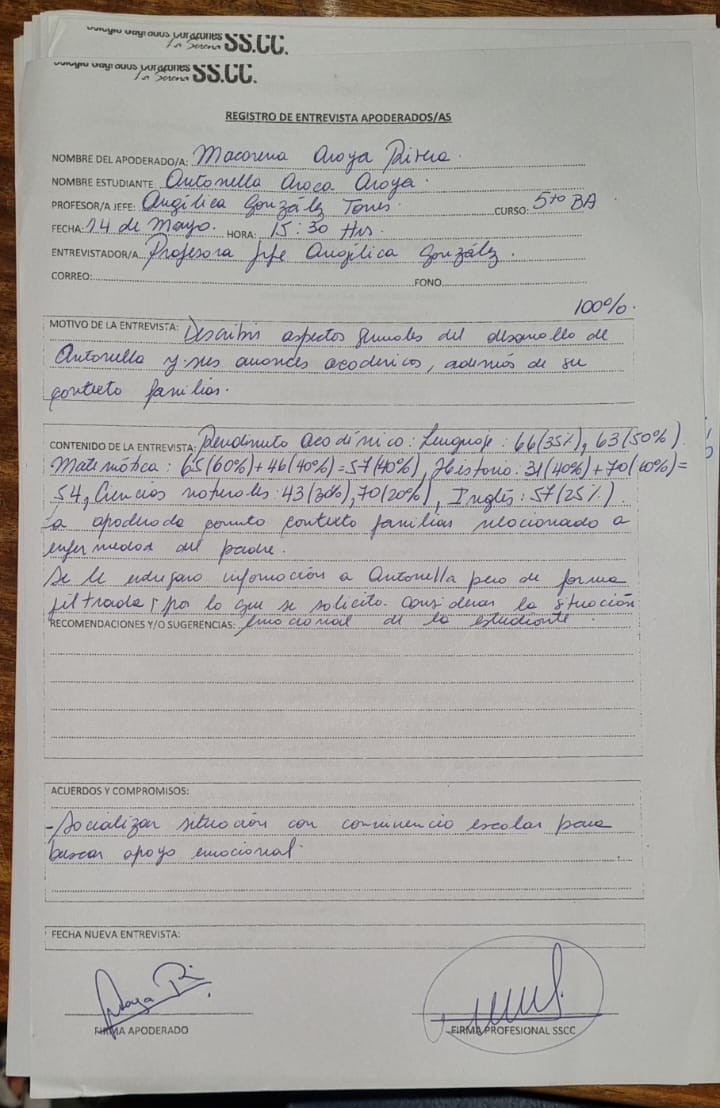 Colegio Sagrados Corazones
La Serena SS.CC.
Colegio Sagrados Corazones
La Serena SS.CC.
REGISTRO DE ENTREVISTA APODERADOS/AS
NOMBRE DEL APODERADO/A: Macarena Araya Rivera.
NOMBRE ESTUDIANTE: Antonella Aroca Araya.
PROFESOR/A JEFE: Angélica González Torres. CURSO: 5to BA
FECHA: 14 de Mayo. HORA: 15:30 Hrs.
ENTREVISTADOR/A: Profesora Jefe Angélica González.
CORREO: FONO
100%.
MOTIVO DE LA ENTREVISTA: Describir aspectos generales del desarrollo de
Antonella y sus avances académicos, además de su
contexto familiar.
CONTENIDO DE LA ENTREVISTA: Rendimiento Académico: Lenguaje: 66(35%), 63(50%).
Matemática: 65(60%)+46(40%)=57(40%), Historia: 31(40%)+70(60%)=
54, Ciencias naturales: 43(30%), 70(20%), Inglés: 57(25%).
La apoderada comenta contexto familiar relacionado a
enfermedad del padre.
Se le entregara información a Antonella pero de forma
filtrada, por lo que se solicita considerar la situación
RECOMENDACIONES Y/O SUGERENCIAS: emocional de la estudiante.
ACUERDOS Y COMPROMISOS:
-Socializar situación con convivencia escolar para
buscar apoyo emocional.
FECHA NUEVA ENTREVISTA:
Araya Ri
FIRMA APODERADO FIRMA PROFESIONAL SSCC